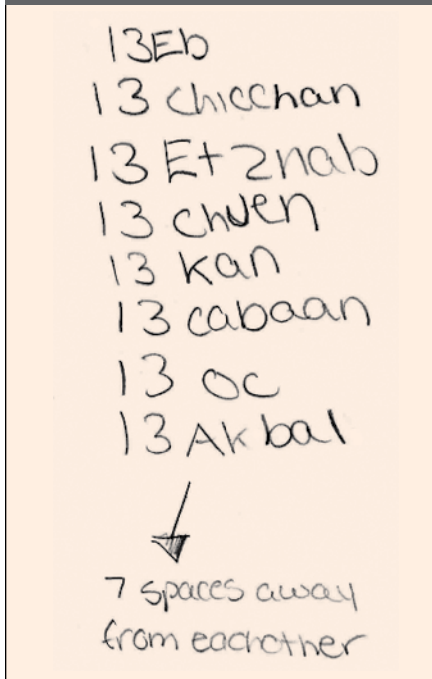 13Eb
13 chicchan
13 Etznab
13 chuen
13 kan
13 cabaan
13 oc
13 Akbal
7 spaces away
from eachother